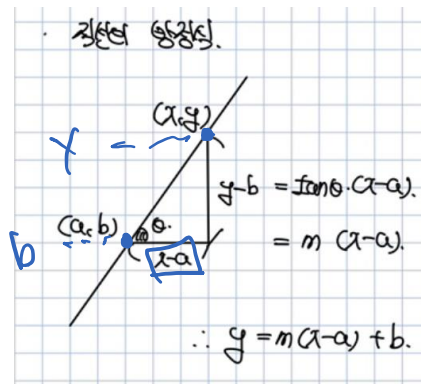 · 직선의 방정식.
(x,y)
Y
y-b = tanθ·(x-a).
(a,b) θ.
b
= m (x-a).
x-a
∴ y = m(x-a) + b.